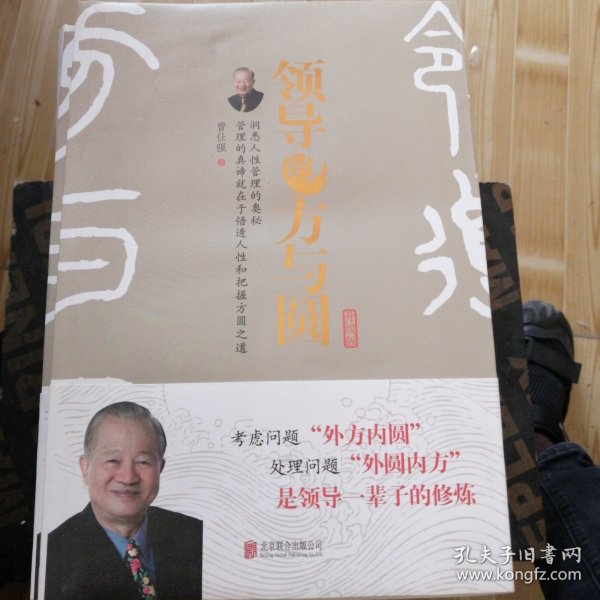 领导的方与圆
洞悉人性管理的奥秘
管理的真谛就在于悟透人性和把握方圆之道
曾仕强 著
考虑问题“外方内圆”
处理问题“外圆内方”
是领导一辈子的修炼
北京联合出版公司
Beijing United Publishing Co.,Ltd.
孔夫子旧书网
www.kongfz.com